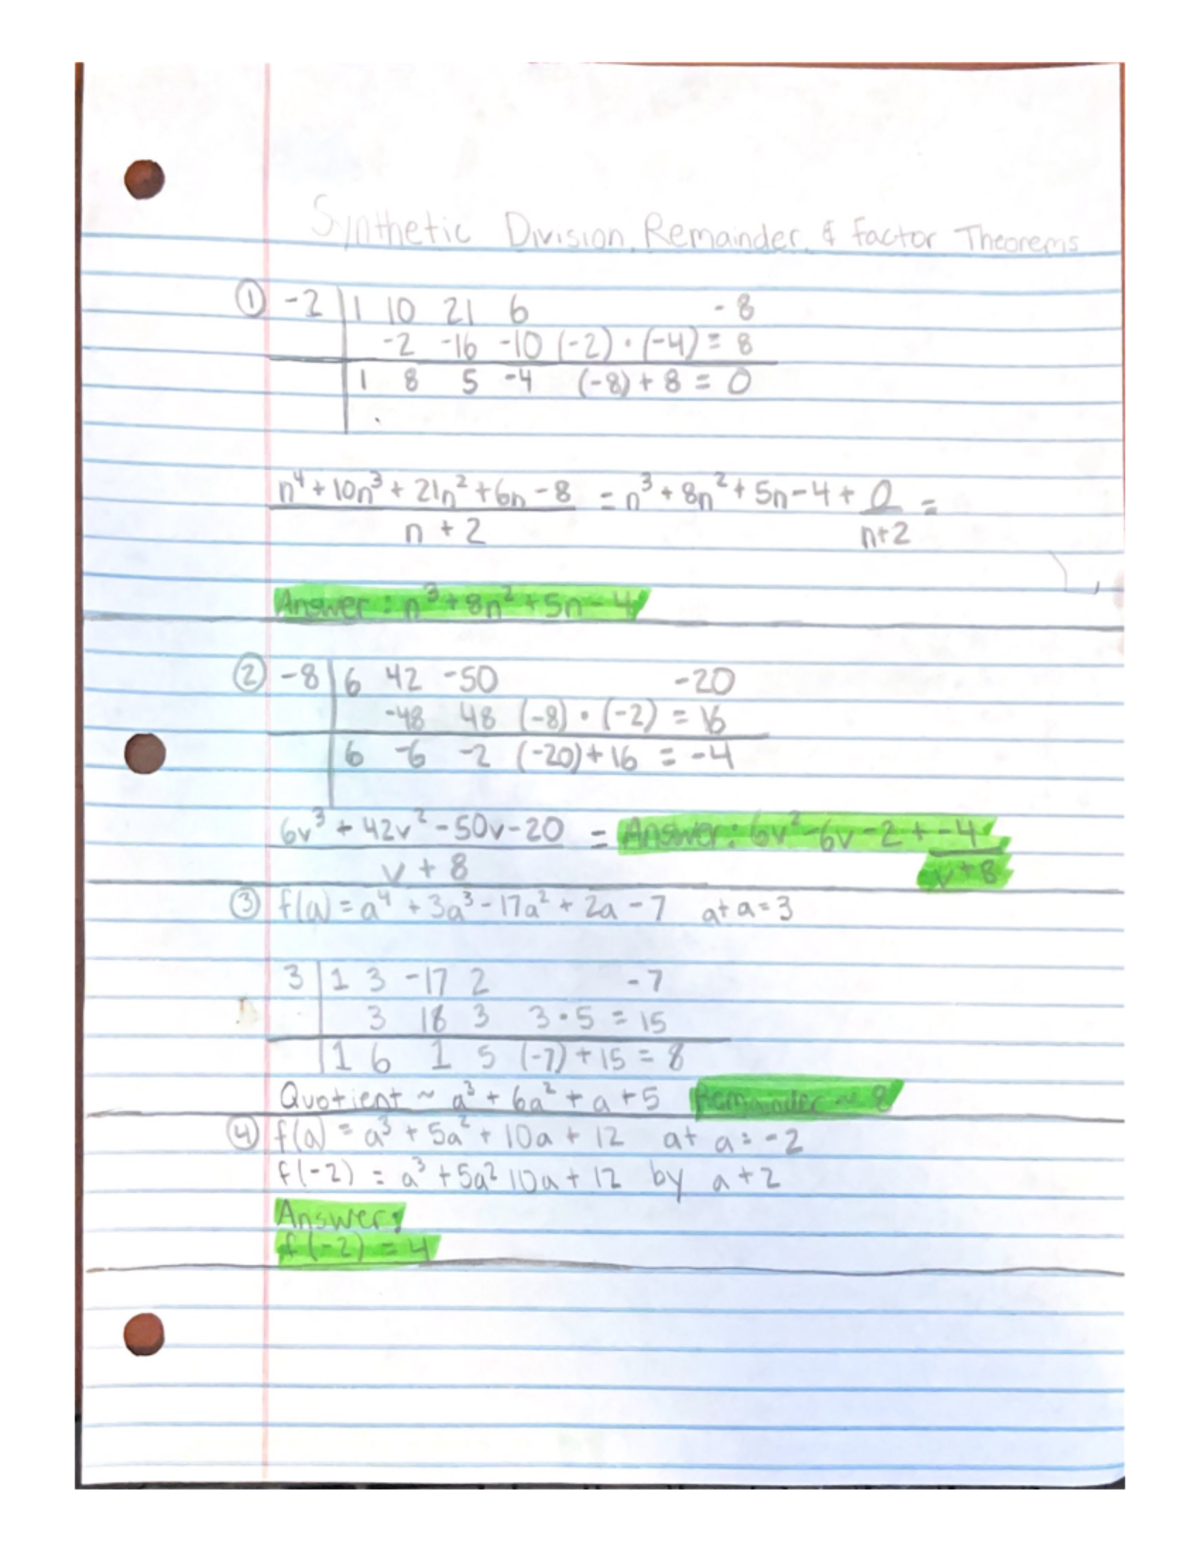 Synthetic Division, Remainder, & Factor Theorems
① -2 | 1 10 21 6 -8
-2 -16 -10 (-2) · (-4) = 8
1 8 5 -4 (-8) + 8 = 0
n⁴ + 10n³ + 21n² + 6n - 8 = n³ + 8n² + 5n - 4 + 0 =
n + 2 n+2
Answer: n³ + 8n² + 5n - 4
② -8 | 6 42 -50 -20
-48 48 (-8) · (-2) = 16
6 -6 -2 (-20) + 16 = -4
6v³ + 42v² - 50v - 20 = Answer: 6v² - 6v - 2 + -4
v + 8 v + 8
③ f(a) = a⁴ + 3a³ - 17a² + 2a - 7 at a = 3
3 | 1 3 -17 2 -7
3 18 3 3 · 5 = 15
1 6 1 5 (-7) + 15 = 8
Quotient ~ a³ + 6a² + a + 5 Remainder ~ 8
④ f(a) = a³ + 5a² + 10a + 12 at a = -2
f(-2) = a³ + 5a² 10a + 12 by a + 2
Answer:
f(-2) = 4